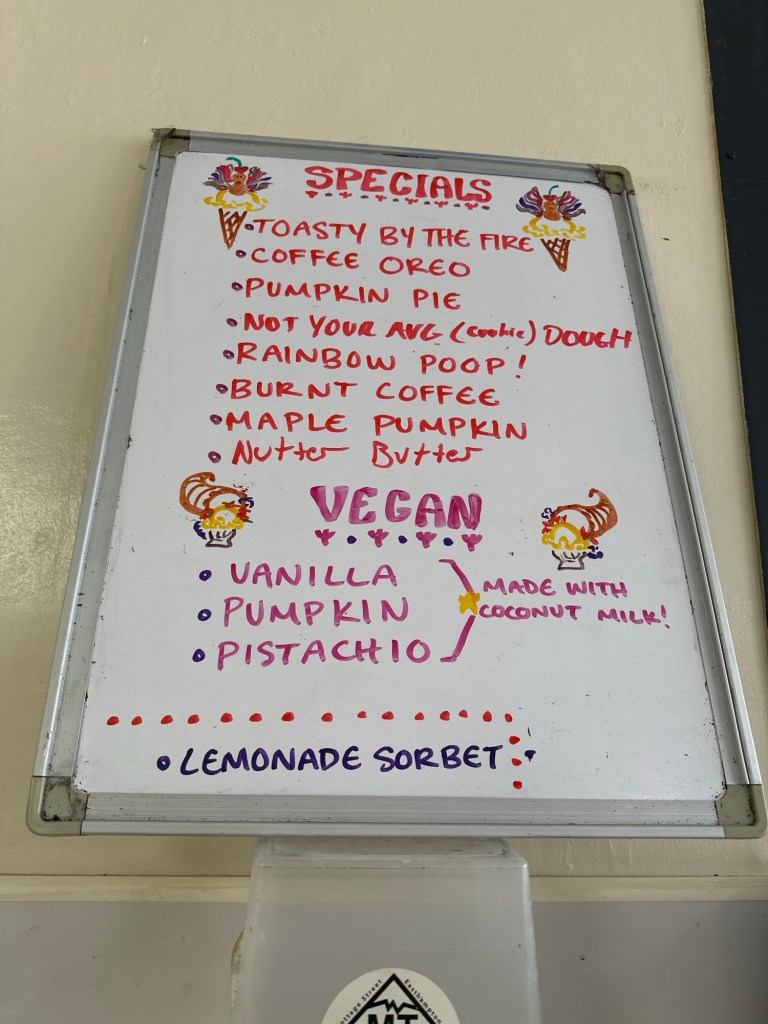 SPECIALS
• TOASTY BY THE FIRE
• COFFEE OREO
• PUMPKIN PIE
• NOT YOUR AVG (cookie) DOUGH
• RAINBOW POOP!
• BURNT COFFEE
• MAPLE PUMPKIN
• Nutter Butter
VEGAN
• VANILLA
• PUMPKIN
• PISTACHIO
MADE WITH
COCONUT MILK!
• LEMONADE SORBET
Cottage Street Easthampton
MT